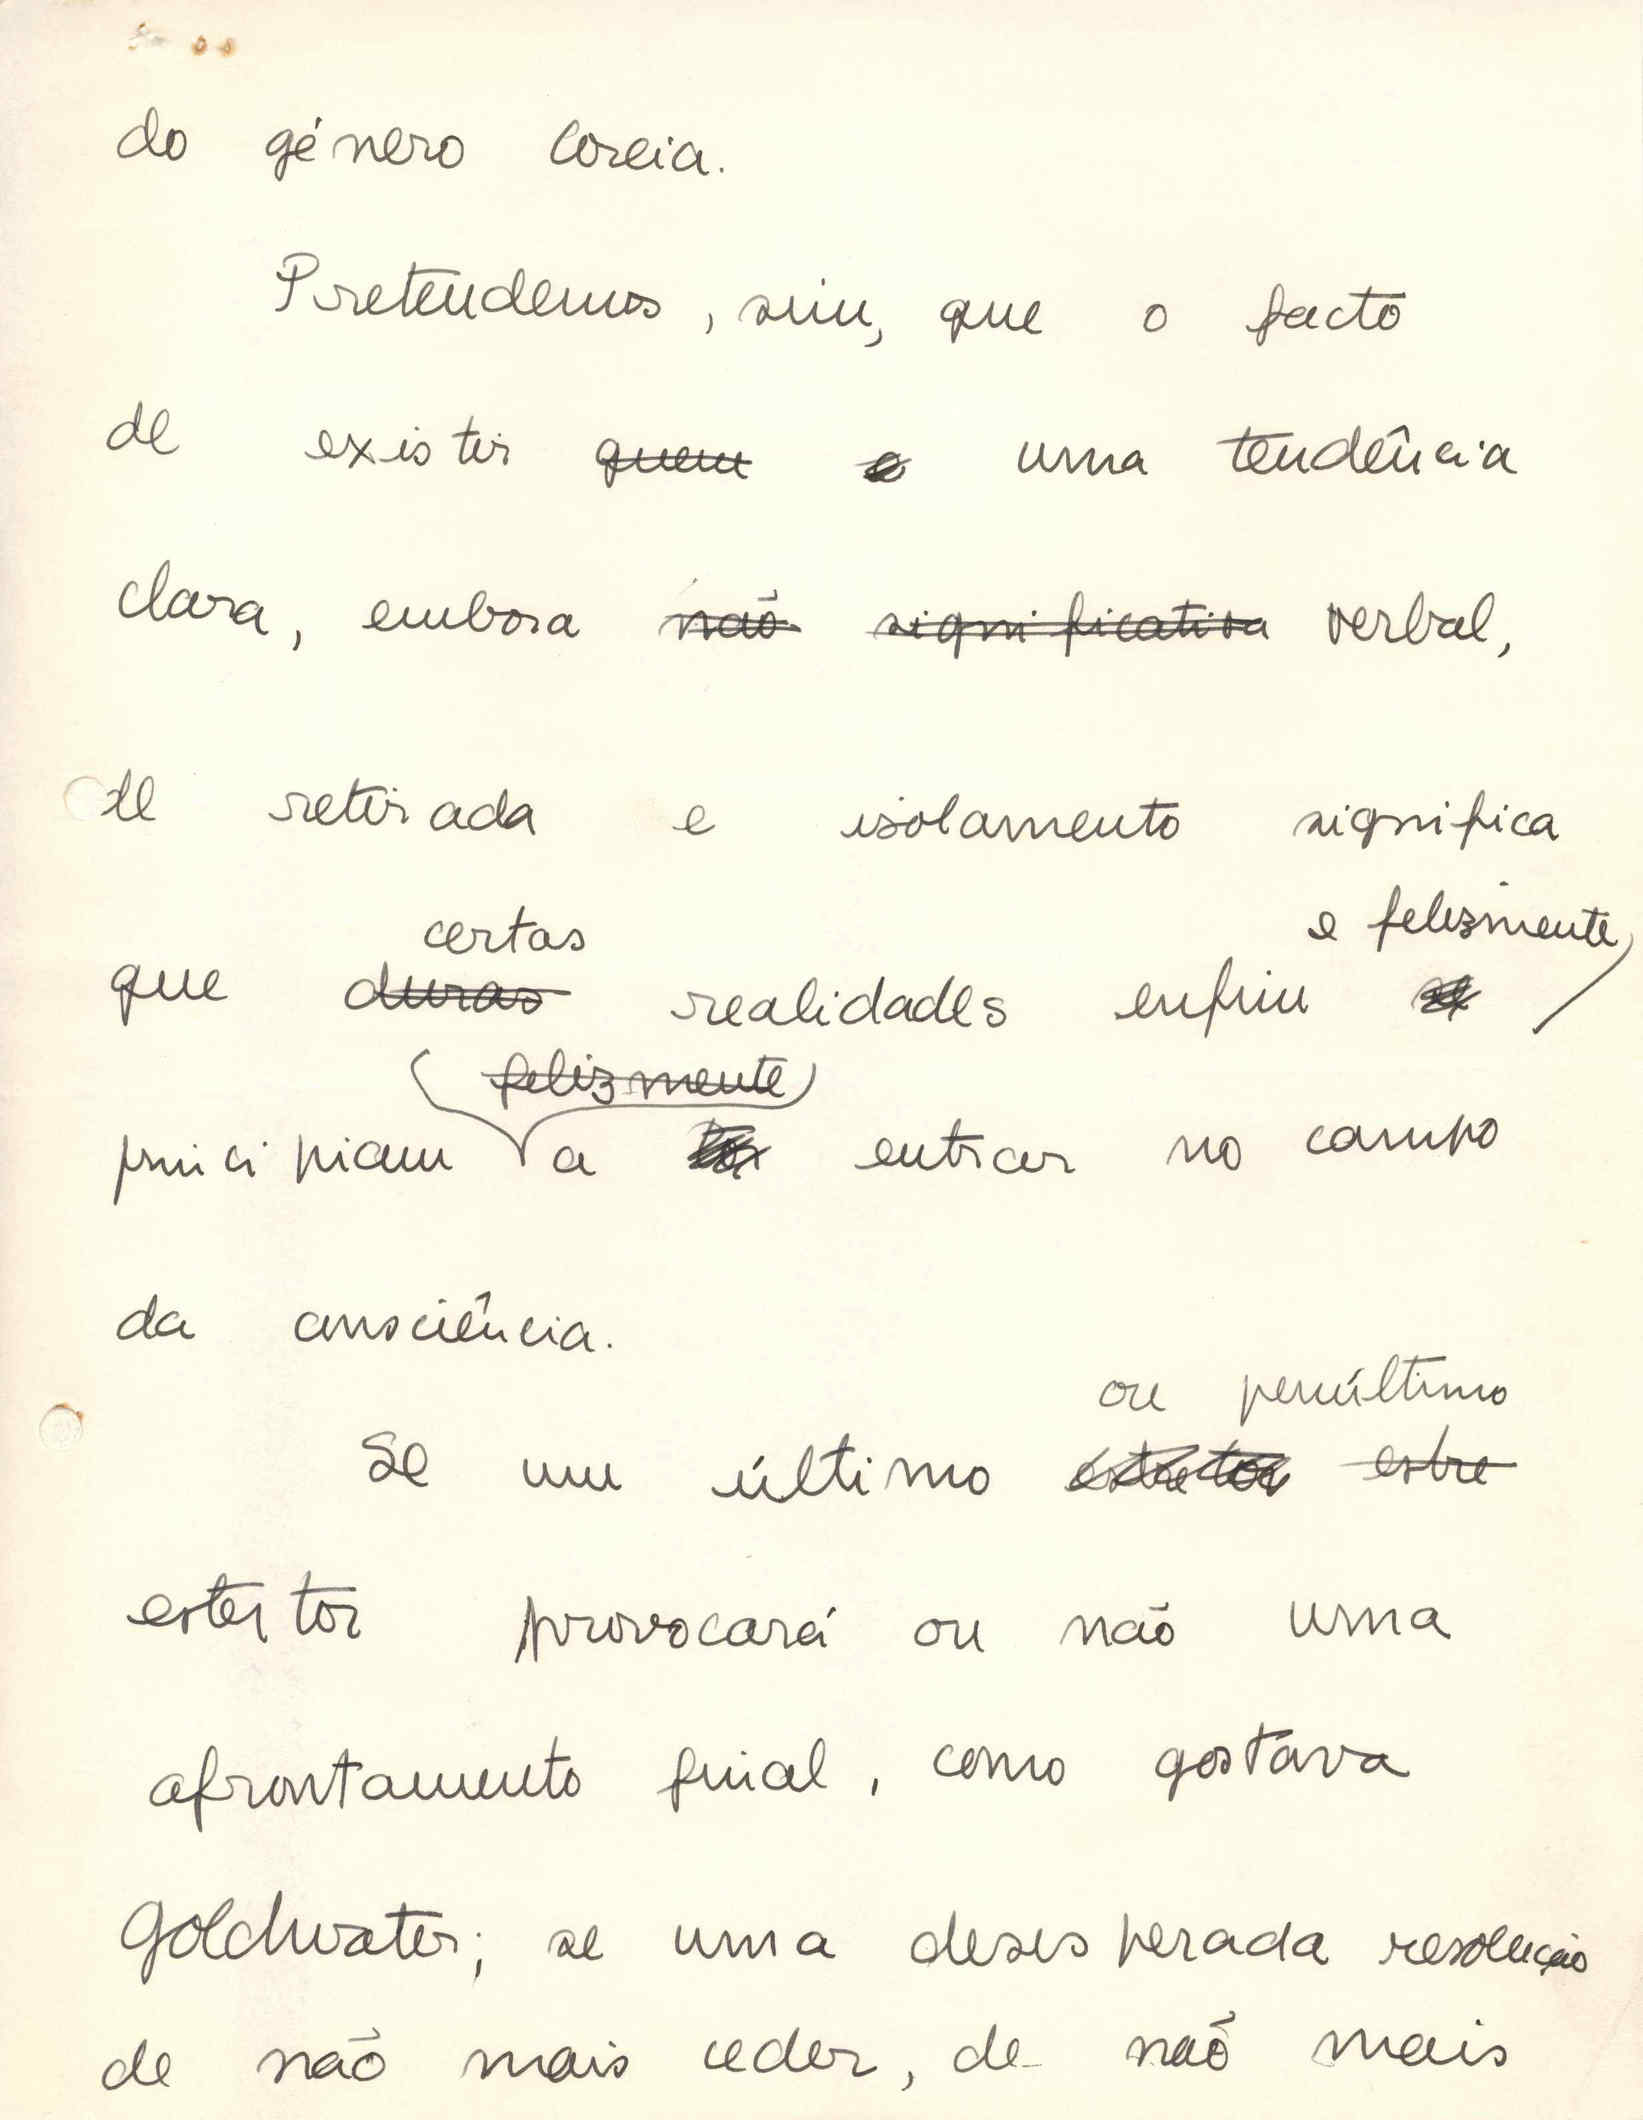 do género Coreia.
Pretendemos, sim, que o facto
de existir quem e uma tendência
clara, embora não significativa verbal,
de retirada e isolamento significa
certas e felizmente
que duras realidades enfim
felizmente
principiam a entrar no campo
da consciência.
ou penúltimo
Se um último estretor estre
estertor provocará ou não uma
afrontamento final, como gostava
Goldwater; se uma desesperada resolução
de não mais ceder, de não mais